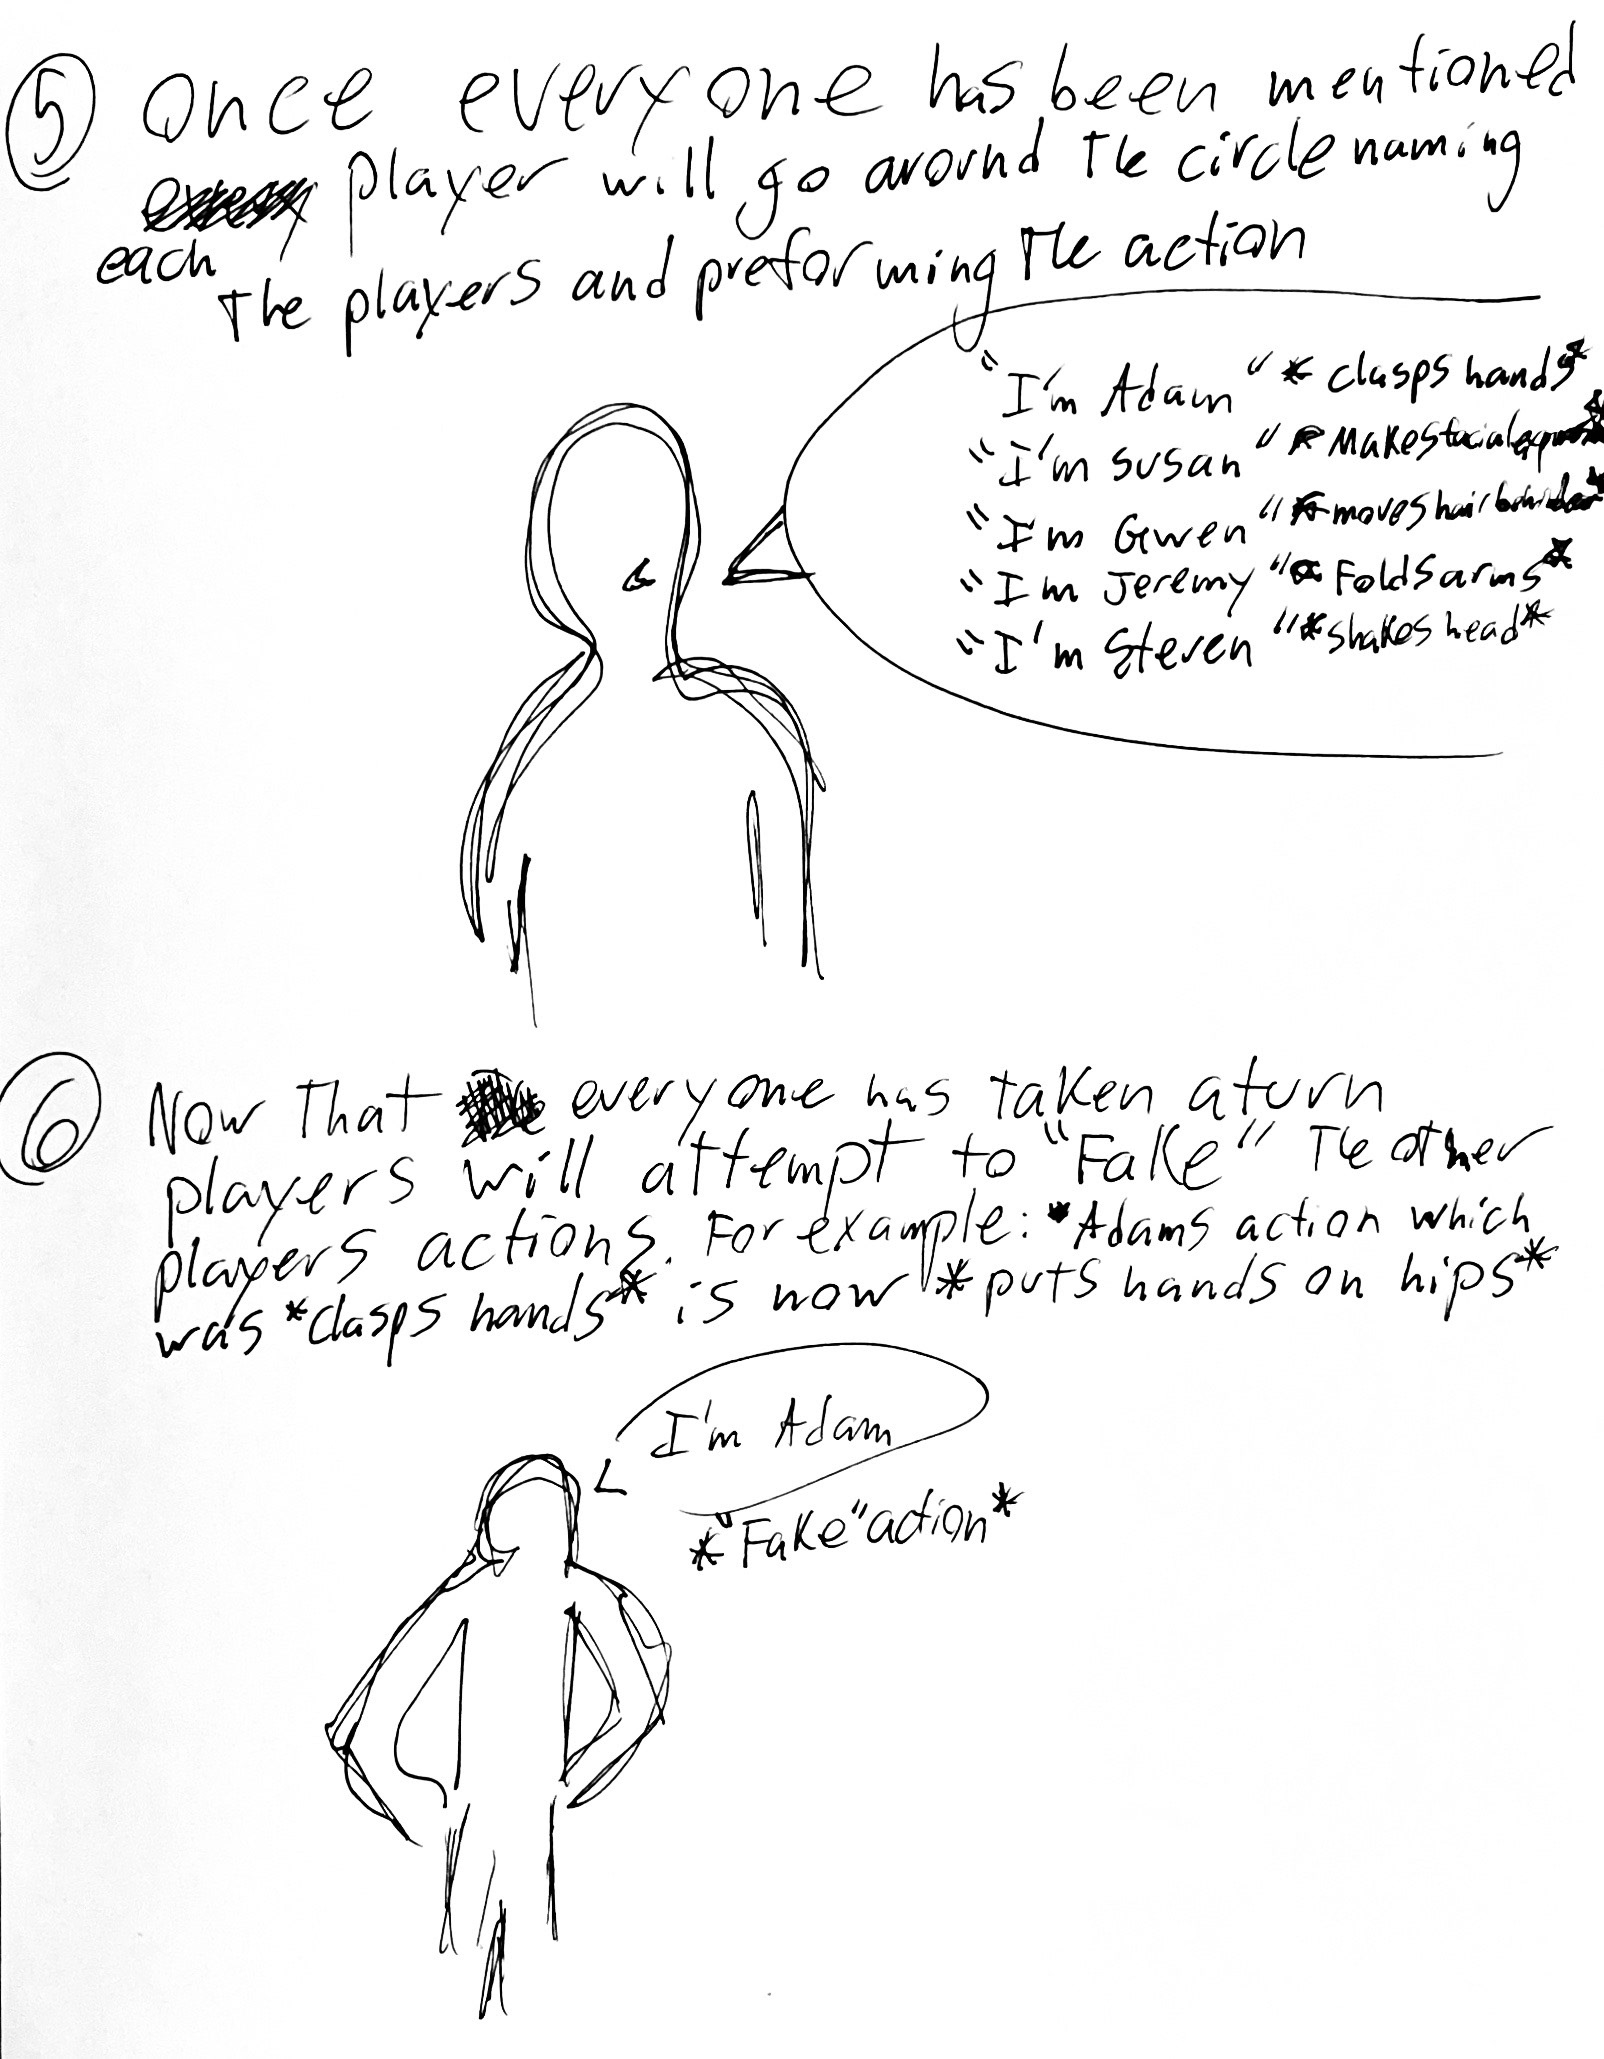 5 Once everyone has been mentioned
player will go around the circle naming
each
the players and preforming the action
"I'm Adam" *clasps hands*
"I'm Susan" *Makes facial
"I'm Gwen" *moves hair
"I'm Jeremy" *Folds arms*
"I'm Steven" *shakes head*
6 Now that everyone has taken a turn
players will attempt to "Fake" the other
players actions. For example: *Adams action which
was *clasps hands* is now *puts hands on hips*
I'm Adam
*"Fake" action*